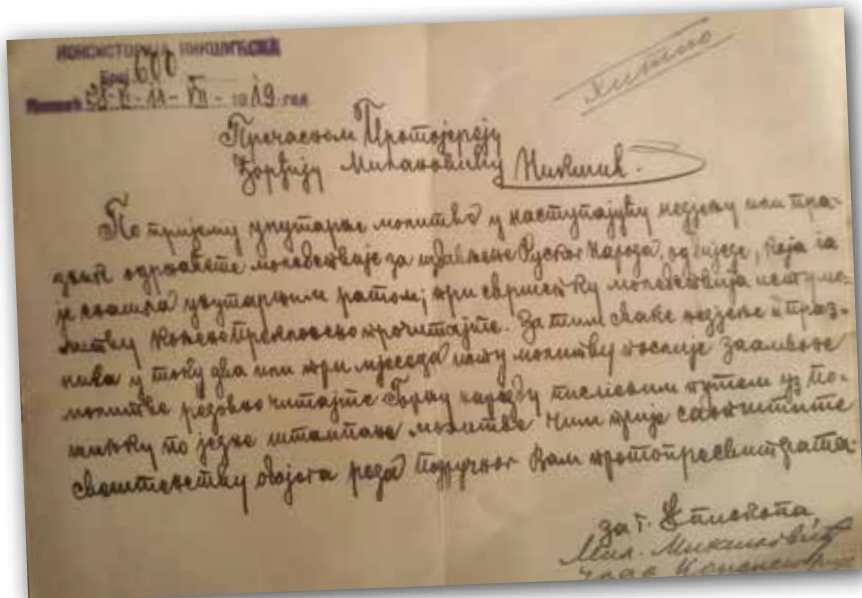 КОНСИСТОРИЈА НИКШИЋСКА
Број 600
1919 год
хитно
Пречасном Протојереју
Ђорђију Милановићу Никшић.
По пријему упутарас молитве у наступајућу недјељу или пра-
зник одржаћете молебствије за избављење Руског Народа, од бједе, која га
је снашла унутарњим ратом; при свршетку молебствија исту мо-
литву кољенопреклоњено прочитајте. За тим сваке недјеље и праз-
ника у току два или три мјесеца исту молитву послије заамвоне
молитве редовно читајте. Горњу наредбу писменим путем уз по-
шиљку по једне штампане молитве чим прије саопштите
свештенству овојега реда подручног Вам протопресвитерата.
за г. Епископа
Мил.
члан Консисторије